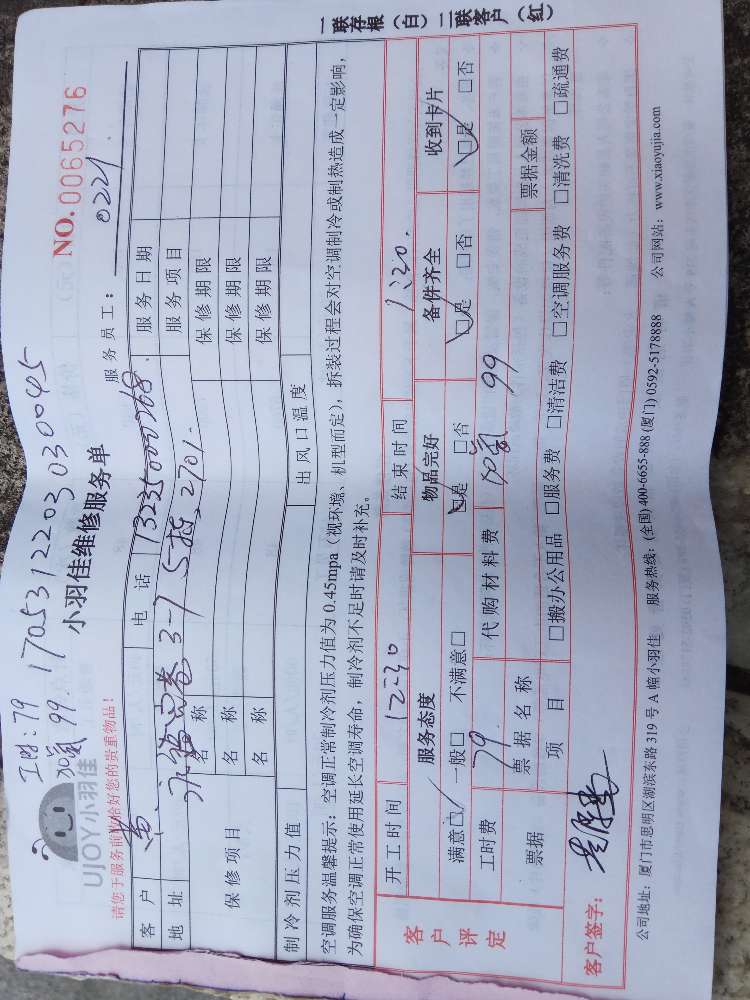 一联存根（白）二联客户（红）
工时：79 1705312203030045
加氟 99
UJOY小羽佳
小羽佳维修服务单
NO.0065276
请您于服务前收恰好您的贵重物品！
服务员工： 0221
客户 黄 电话 13235000768 服务日期
地址 3-1 5梯 2701 服务项目
保修项目 名称 保修期限
名称 保修期限
名称 保修期限
制冷剂压力值 出风口温度
空调服务温馨提示：空调正常制冷剂压力值为 0.45mpa（视环境、机型而定），拆装过程会对空调制冷或制热造成一定影响，
为确保空调正常使用延长空调寿命，制冷剂不足时请及时补充。
客户评定
开工时间 12:30 结束时间 1:30.
服务态度 物品完好 备件齐全 收到卡片
满意☑ 一般□ 不满意□ ☑是 □否 ☑是 □否 ☑是 □否
工时费 79 代购材料费 加氟 99
票据 票据名称 票据金额
项目 □搬办公用品 □服务费 □清洁费 □空调服务费 □清洗费 □疏通费
客户签字：
公司地址：厦门市思明区湖滨东路 319 号 A 幢小羽佳 服务热线：(全国) 400-6655-888 (厦门) 0592-5178888 公司网站：www.xiaoyujia.com